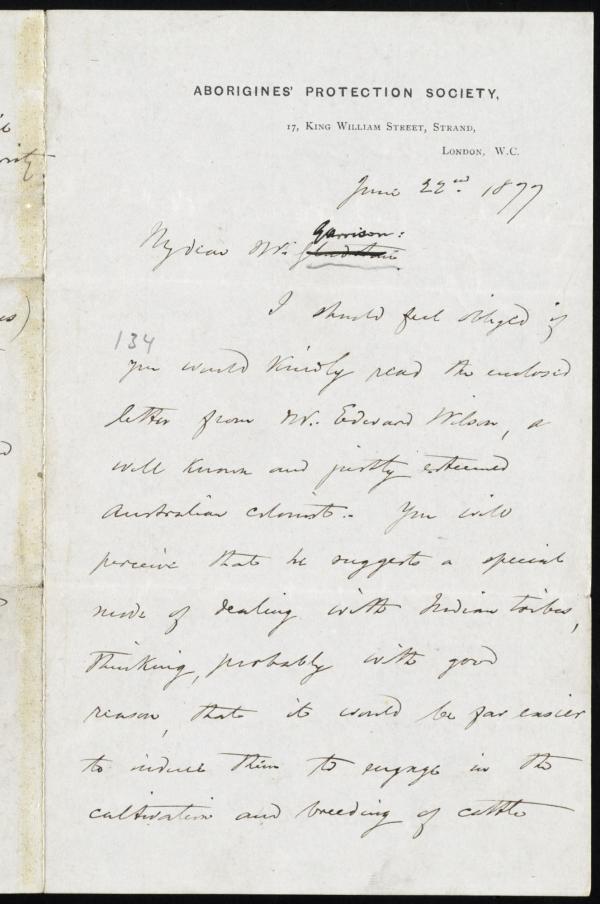 ABORIGINES' PROTECTION SOCIETY,
17, KING WILLIAM STREET, STRAND,
LONDON, W.C.
June 22nd. 1877
Garrison:
My dear Mr.
I should feel obliged if
134
you would kindly read the enclosed
letter from Mr. Edward Wilson, a
well known and justly esteemed
Australian colonist. You will
perceive that he suggests a special
mode of dealing with Indian tribes,
thinking, probably with good
reason, that it would be far easier
to induce them to engage in the
cultivation and breeding of cattle